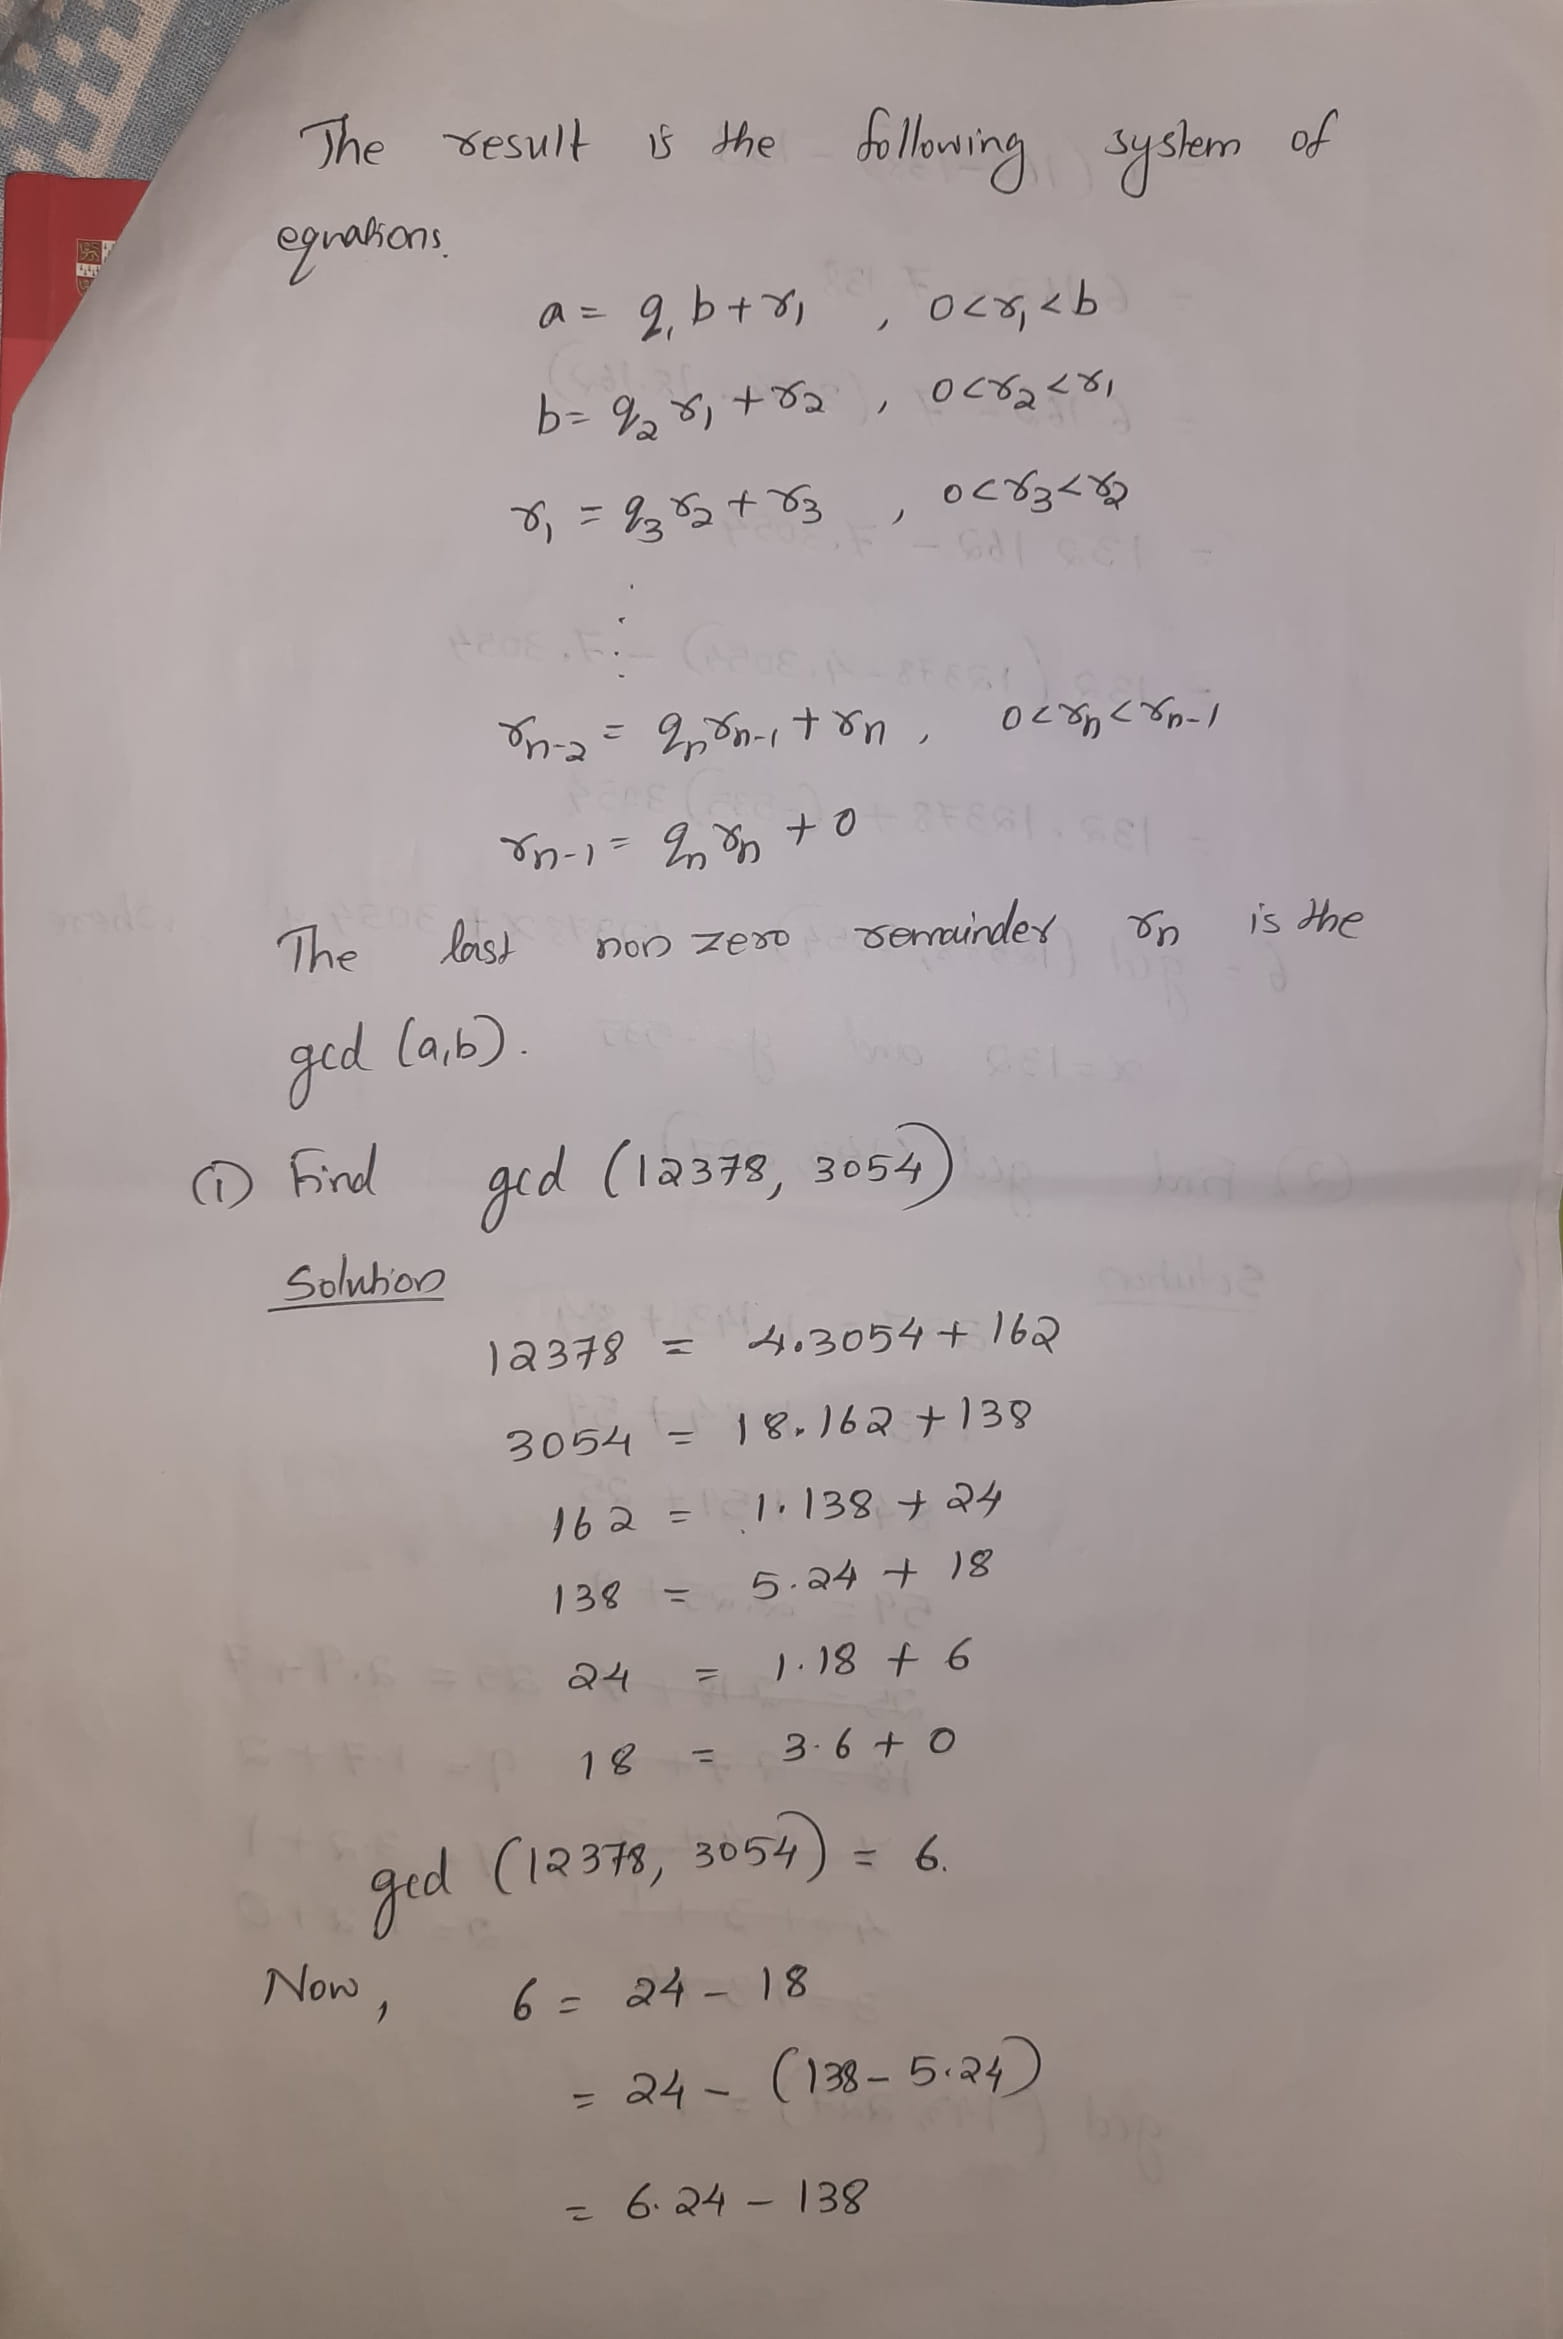 The result is the following system of
equations.
a = q₁ b + r₁ , 0 < r₁ < b
b = q₂ r₁ + r₂ , 0 < r₂ < r₁
r₁ = q₃ r₂ + r₃ , 0 < r₃ < r₂
⋮
rₙ₋₂ = qₙ rₙ₋₁ + rₙ , 0 < rₙ < rₙ₋₁
rₙ₋₁ = qₙ rₙ + 0
The last non zero remainder rₙ is the
gcd (a,b).
① Find gcd (12378, 3054)
Solution
12378 = 4.3054 + 162
3054 = 18.162 + 138
162 = 1.138 + 24
138 = 5.24 + 18
24 = 1.18 + 6
18 = 3.6 + 0
gcd (12378, 3054) = 6.
Now, 6 = 24 - 18
= 24 - (138 - 5.24)
= 6.24 - 138